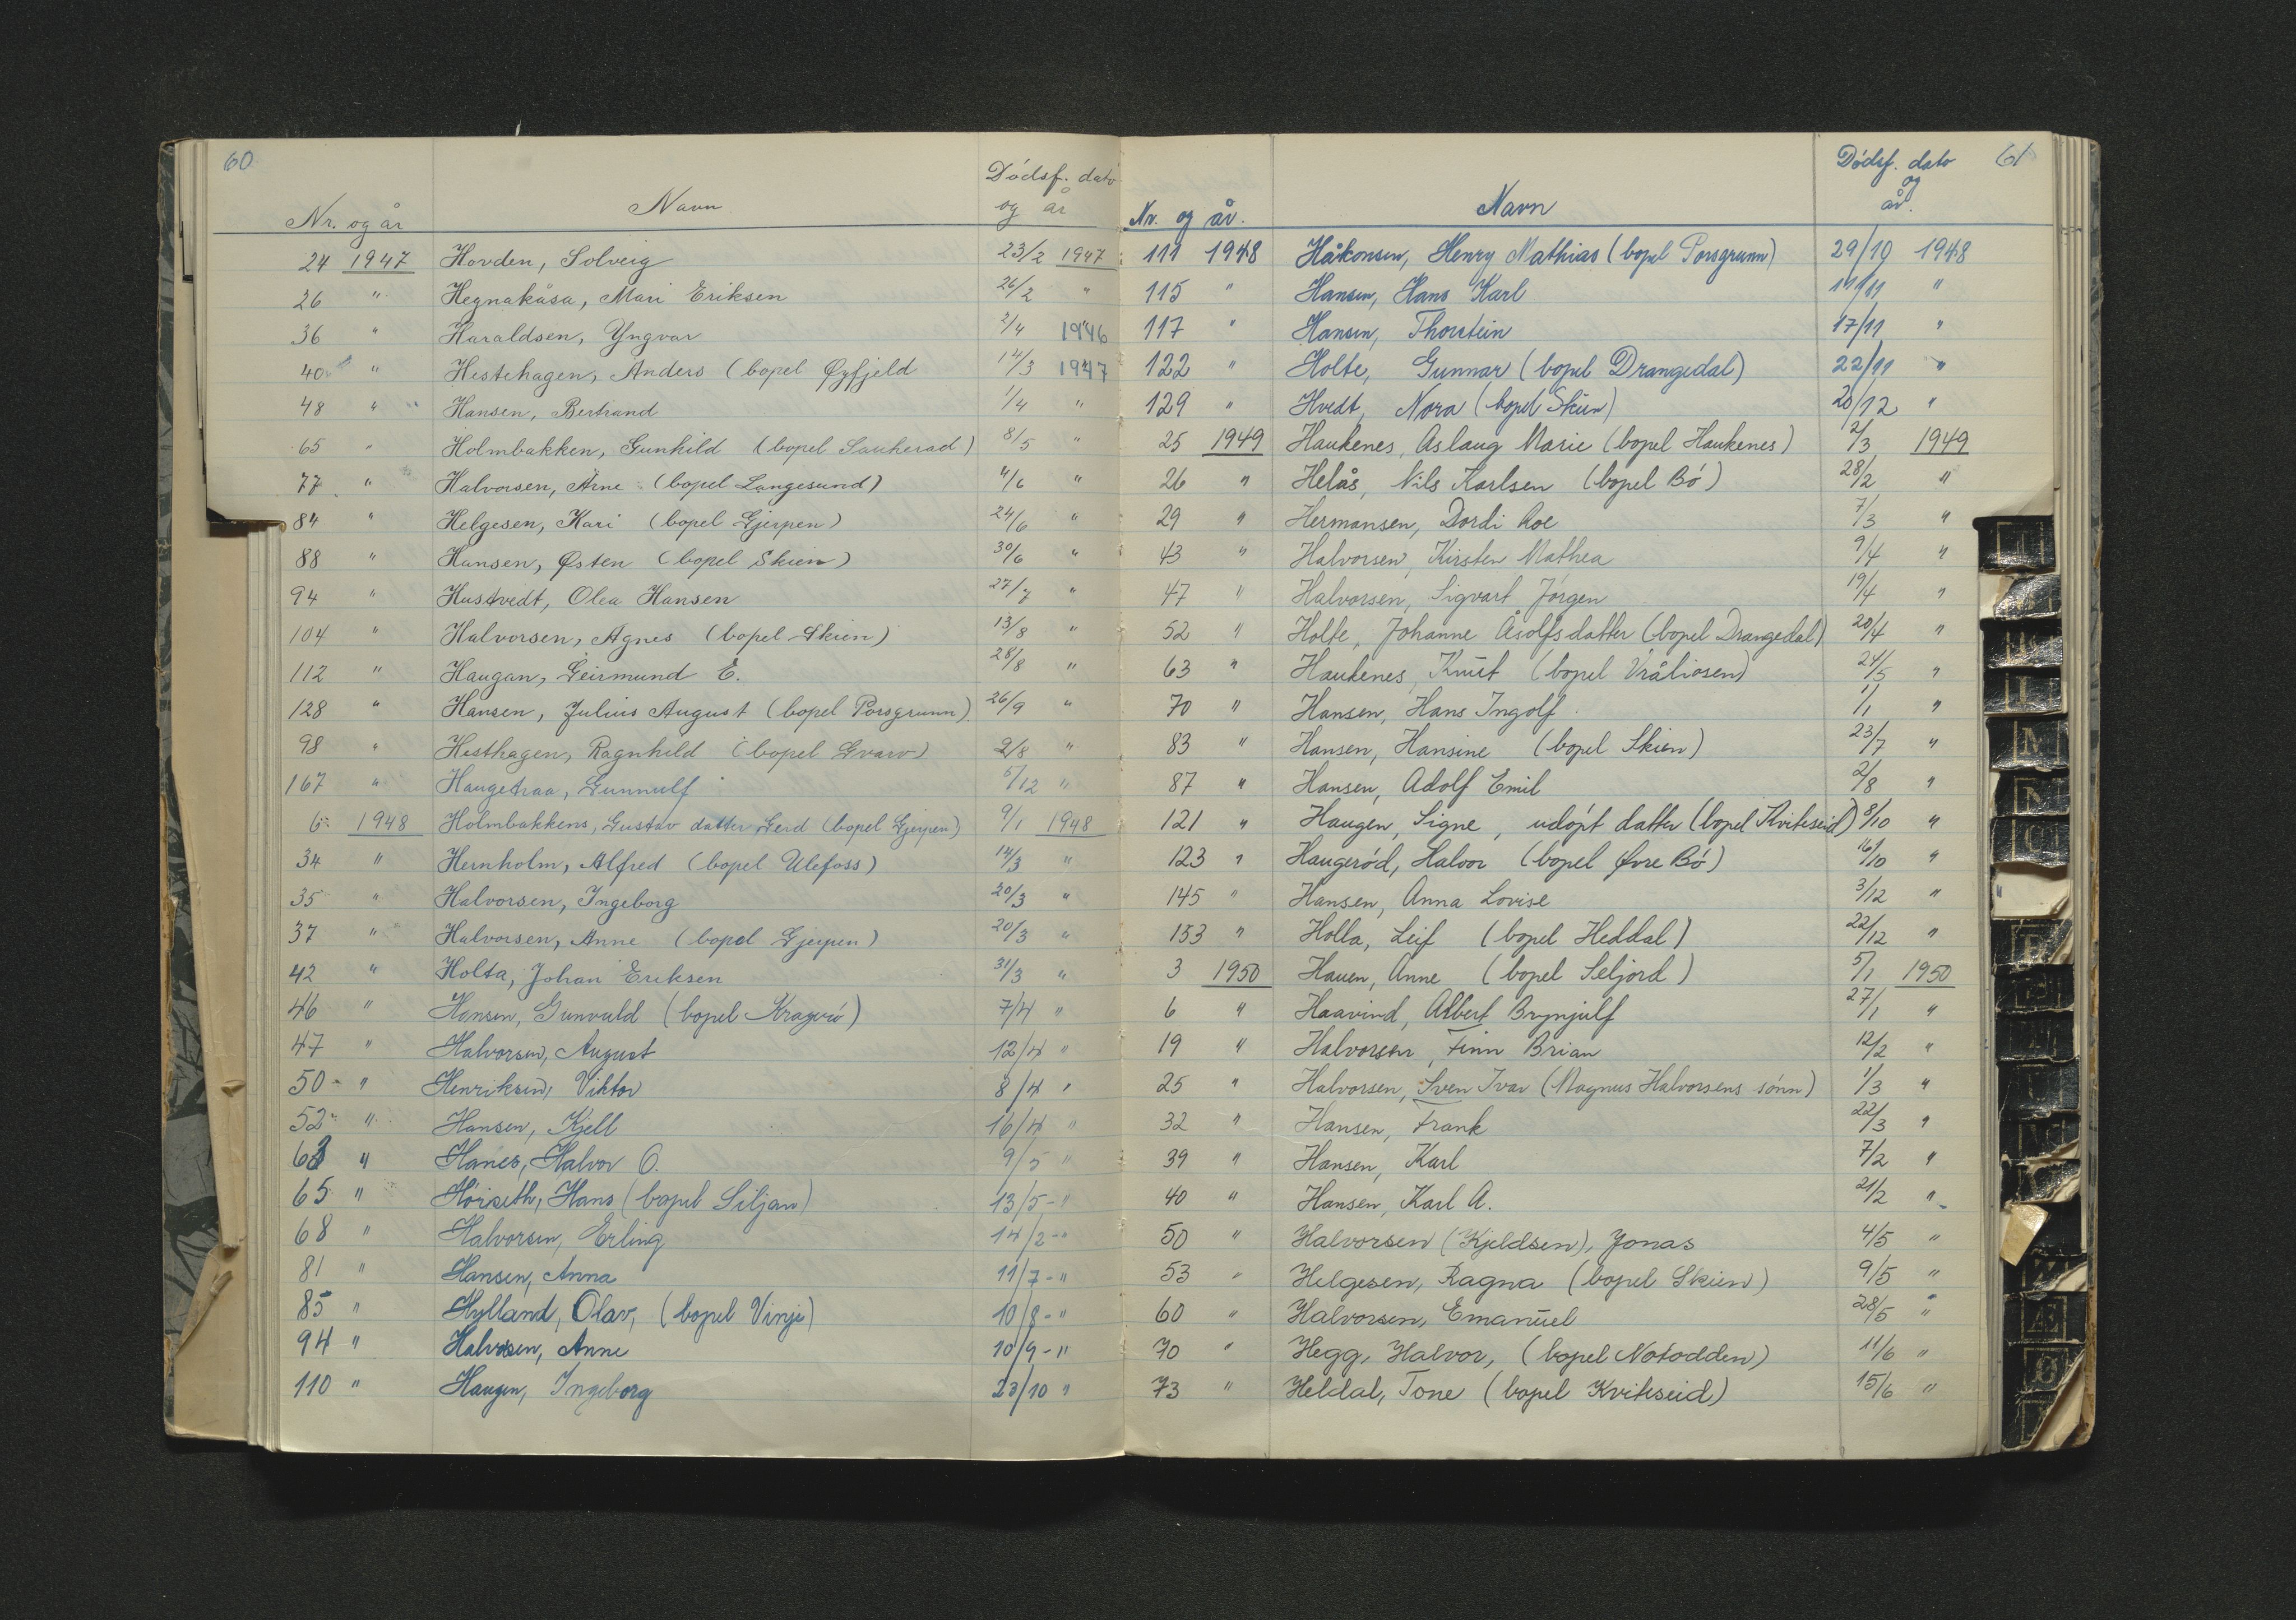 60
Dødsf. dato
Nr. og år Navn og år
24 1947 Hovden, Solveig 23/2 1947
26 " Hegnakåsa, Mari Eriksen 26/2 "
36 " Haraldsen, Yngvar 2/4 1946
40 " Hestehagen, Anders (bopel Øyfjeld 14/3 1947
48 " Hansen, Bertrand 1/4 "
65 " Holmbakken, Gunhild (bopel Sauherad) 8/5 "
77 " Halvorsen, Arne (bopel Langesund) 4/6 "
84 " Helgesen, Kari (bopel Gjerpen) 24/6 "
88 " Hansen, Østen (bopel Skien) 30/6 "
94 " Hustvedt, Olea Hansen 27/7 "
104 " Halvorsen, Agnes (bopel Skien) 13/8 "
112 " Haugan, Geirmund E. 28/8 "
128 " Hansen, Julius August (bopel Porsgrunn) 26/9 "
98 " Hesthagen, Ragnhild (bopel Gvarv) 2/8 "
167 " Haugetraa, Gunnulf 5/12 "
6 1948 Holmbakkens, Gustav datter Gerd (bopel Gjerpen) 9/1 1948
34 " Hernholm, Alfred (bopel Ulefoss) 14/3 "
35 " Halvorsen, Ingeborg 20/3 "
37 " Halvorsen, Anne (bopel Gjerpen) 20/3 "
42 " Holta, Johan Eriksen 31/3 "
46 " Hansen, Gunvuld (bopel Kragerø) 7/4 "
47 " Halvorsen, August 12/4 "
50 - " Henriksen, Viktor 8/4 "
52 " Hansen, Kjell 16/4 "
63 " Hanes, Halvor O. 9/5 "
65 " Hørseth, Hans (bopel Siljan) 13/5 - "
68 " Halvorsen, Erling 14/2 - "
81 " Hansen, Anna 11/7 - "
85 " Hylland, Olav, (bopel Vinje) 10/8 - "
94 " Halvorsen, Anne 10/9 - "
110 " Haugen, Ingeborg 23/10 "
Dødsf. dato 61
og
Nr. og år. Navn år.
111 1948 Håkonsen, Henry Mathias (bopel Porsgrunn) 29/10 1948
115 " Hansen, Hans Karl 14/11 "
117 " Hansen, Thorstein 17/11 "
122 " Holte, Gunnar (bopel Drangedal) 22/11 "
129 " Hvedt, Nora (bopel Skien) 20/12 "
25 1949 Haukenes, Aslaug Marie (bopel Haukenes) 2/3 1949
26 " Helås, Nils Karlsen (bopel Bø) 28/2 "
29 " Hermansen, Dordi Roe 7/3 "
43 " Halvorsen, Kirsten Mathea 9/4 "
47 " Halvorsen, Sigvart Jørgen 19/4 "
52 " Holte, Johanne Åsolfsdatter (bopel Drangedal) 20/4 "
63 " Haukenes, Knut (bopel Vråliosen) 24/5 "
70 " Hansen, Hans Ingolf 1/1 "
83 " Hansen, Hansine (bopel Skien) 23/7 "
87 " Hansen, Adolf Emil 2/8 "
121 " Haugen, Signe, udøpt datter (bopel Kviteseid) 8/10 "
123 " Haugerød, Halvor (bopel Øvre Bø) 16/10 "
145 " Hansen, Anna Lovise 3/12 "
153 " Holla, Leif (bopel Heddal) 22/12 "
3 1950 Hauen, Anne (bopel Seljord) 5/1 1950
6 " Haavind, Albert Brynjulf 27/1 "
19 " Halvorsen, Finn Brian 12/2 "
25 " Halvorsen, Sven Ivar (Magnus Halvorsens sønn) 1/3 "
32 " Hansen, Frank 22/3 "
39 " Hansen, Karl 7/2 "
40 " Hansen, Karl A. 21/2 "
50 " Halvorsen (Kjeldsen), Jonas 4/5 "
53 " Helgesen, Ragna (bopel Skien) 9/5 "
60 " Halvorsen, Emanuel 28/5 "
70 " Hegg, Halvor, (bopel Notodden) 11/6 "
73 " Heldal, Tone (bopel Kviteseid) 15/6 "
M
N
O
P
Æ
Ø